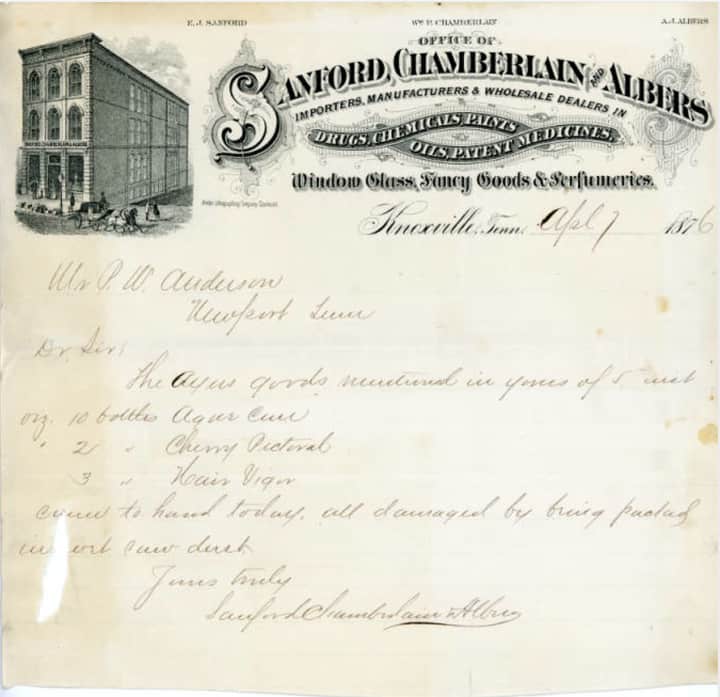 E. J. SANFORD Wm P. CHAMBERLAIN A. J. ALBERS
OFFICE OF
SANFORD, CHAMBERLAIN AND ALBERS
IMPORTERS, MANUFACTURERS & WHOLESALE DEALERS IN
DRUGS, CHEMICALS, PAINTS
OILS, PATENT MEDICINES,
Window Glass, Fancy Goods & Perfumeries.
SANFORD CHAMBERLAIN & ALBERS
Knoxville, Tenn. Apl 7 1876
Mr P. W. Anderson
Newport Tenn
Dr Sir,
The Ayers goods mentioned in yours of 5 inst
viz. 10 bottles Ague Cure
" 2 " Cherry Pectoral
3 " Hair Vigor
came to hand today, all damaged by being packed
in wet saw dust
Yours truly
Sanford Chamberlain & Albers